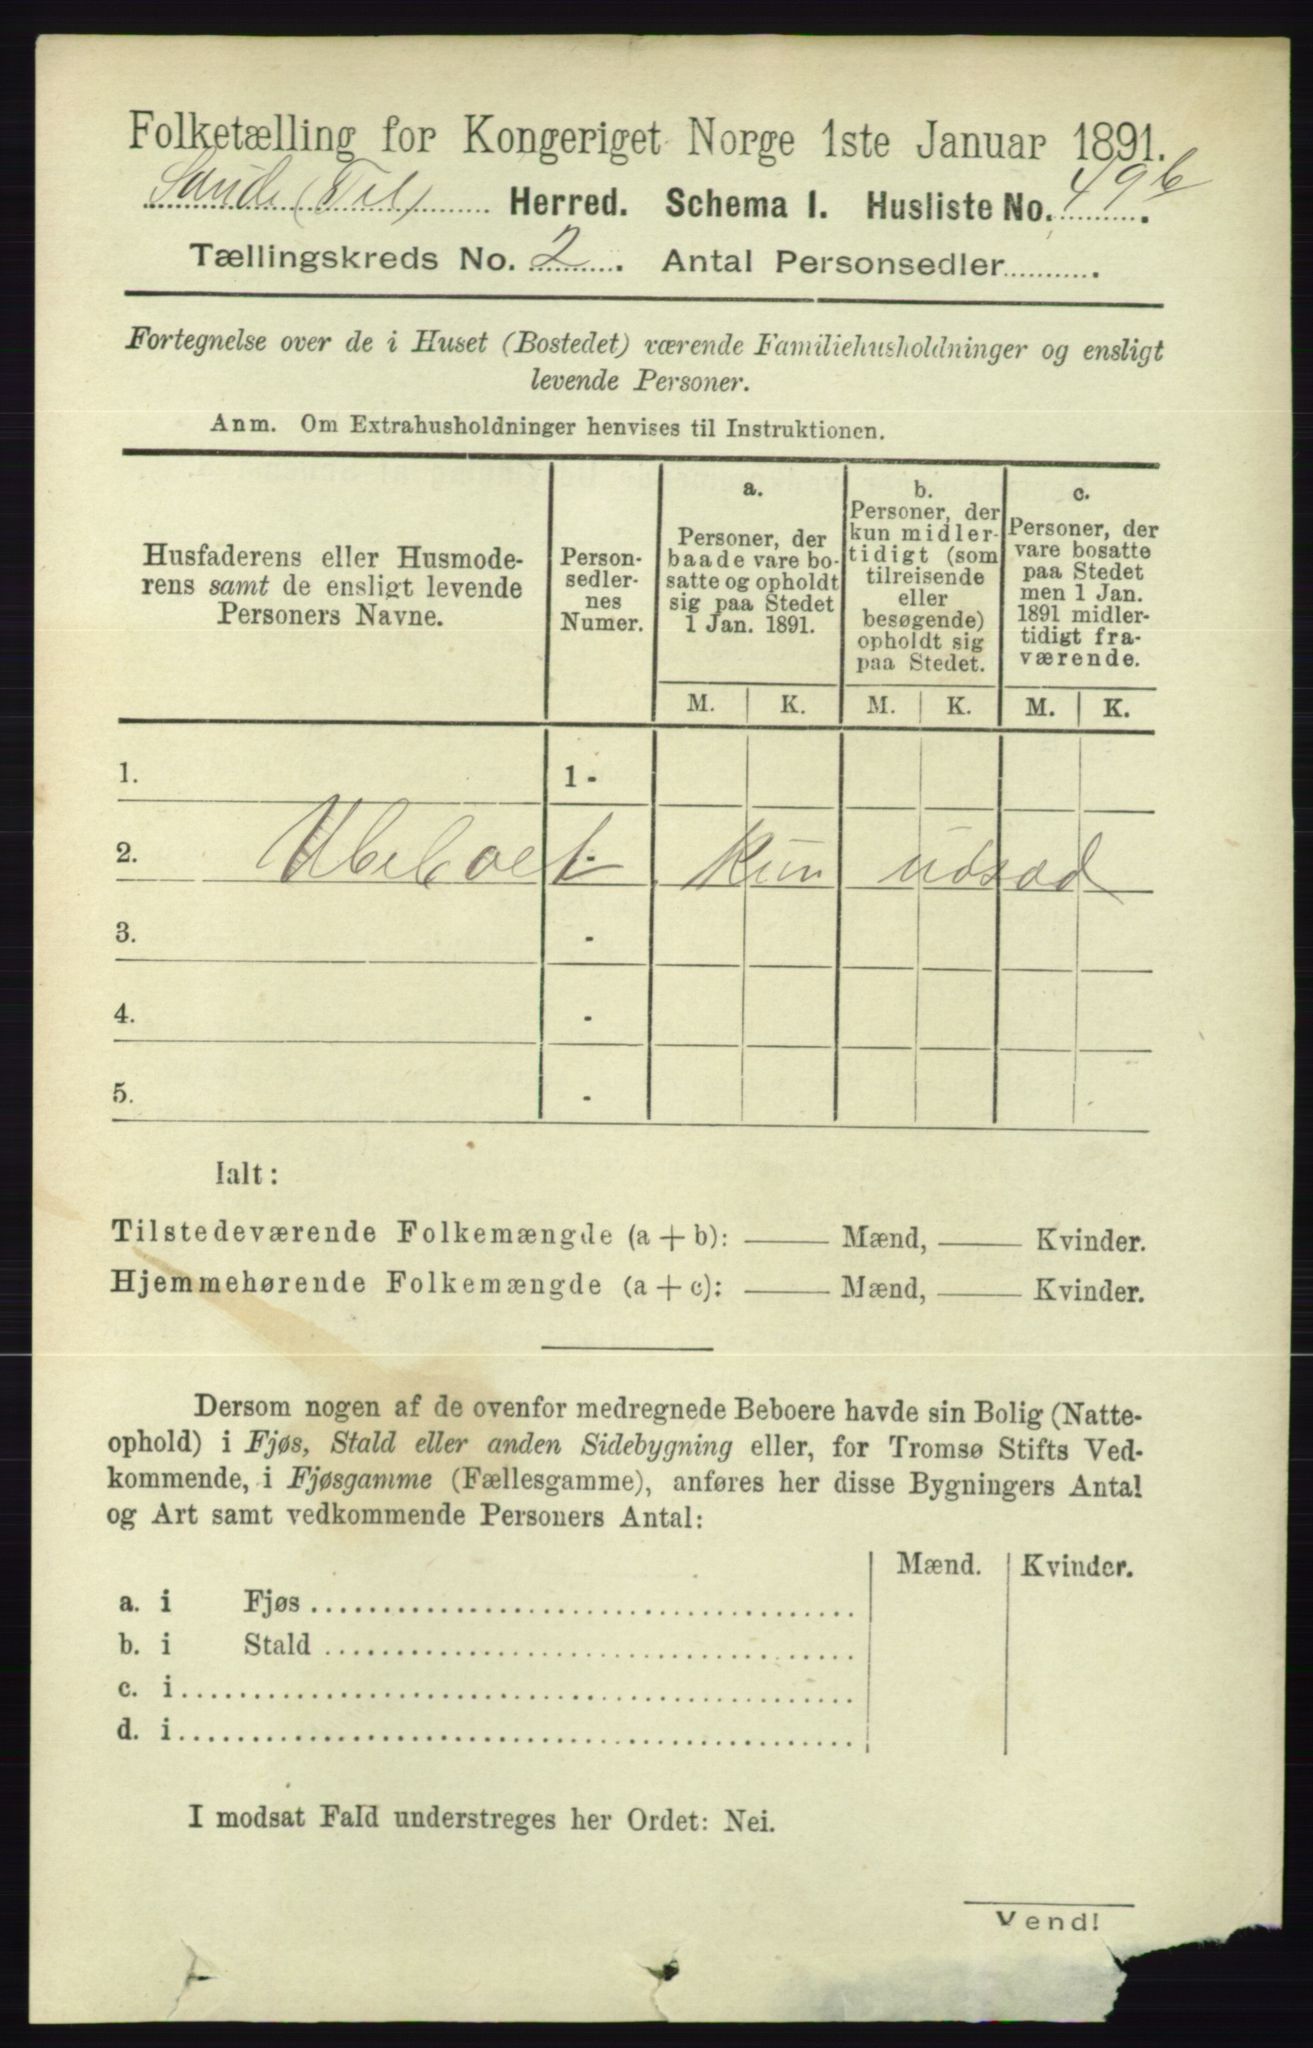 Folketælling for Kongeriget Norge 1ste Januar 1891.
Herred. Schema I. Husliste No. 49b.
Tællingskreds No. 2. Antal Personsedler...........
Fortegnelse over de i Huset (Bostedet) værende Familiehusholdninger og ensligt
levende Personer.
Anm. Om Extrahusholdninger henvises til Instruktionen.
Husfaderens eller Husmode-
rens samt de ensligt levende
Personers Navne.
Person-
sedler-
nes
Numer.
a.
Personer, der
baade vare bo-
satte og opholdt
sig paa Stedet
1 Jan. 1891.
b.
Personer, der
kun midler-
tidigt (som
tilreisende
eller
besøgende)
opholdt sig
paa Stedet.
c.
Personer, der
vare bosatte
paa Stedet
men 1 Jan.
1891 midler-
tidigt fra-
værende.
M. K. M. K. M. K.
1. 1 -
2. Ubeboet kun udsæd
3. -
4. -
5. -
Ialt:
Tilstedeværende Folkemængde (a + b): —— Mænd, —— Kvinder.
Hjemmehørende Folkemængde (a + c): —— Mænd, —— Kvinder.
Dersom nogen af de ovenfor medregnede Beboere havde sin Bolig (Natte-
ophold) i Fjøs, Stald eller anden Sidebygning eller, for Tromsø Stifts Ved-
kommende, i Fjøsgamme (Fællesgamme), anføres her disse Bygningers Antal
og Art samt vedkommende Personers Antal:
Mænd. Kvinder.
a. i Fjøs
b. i Stald
c. i
d. i
I modsat Fald understreges her Ordet: Nei.
Vend!